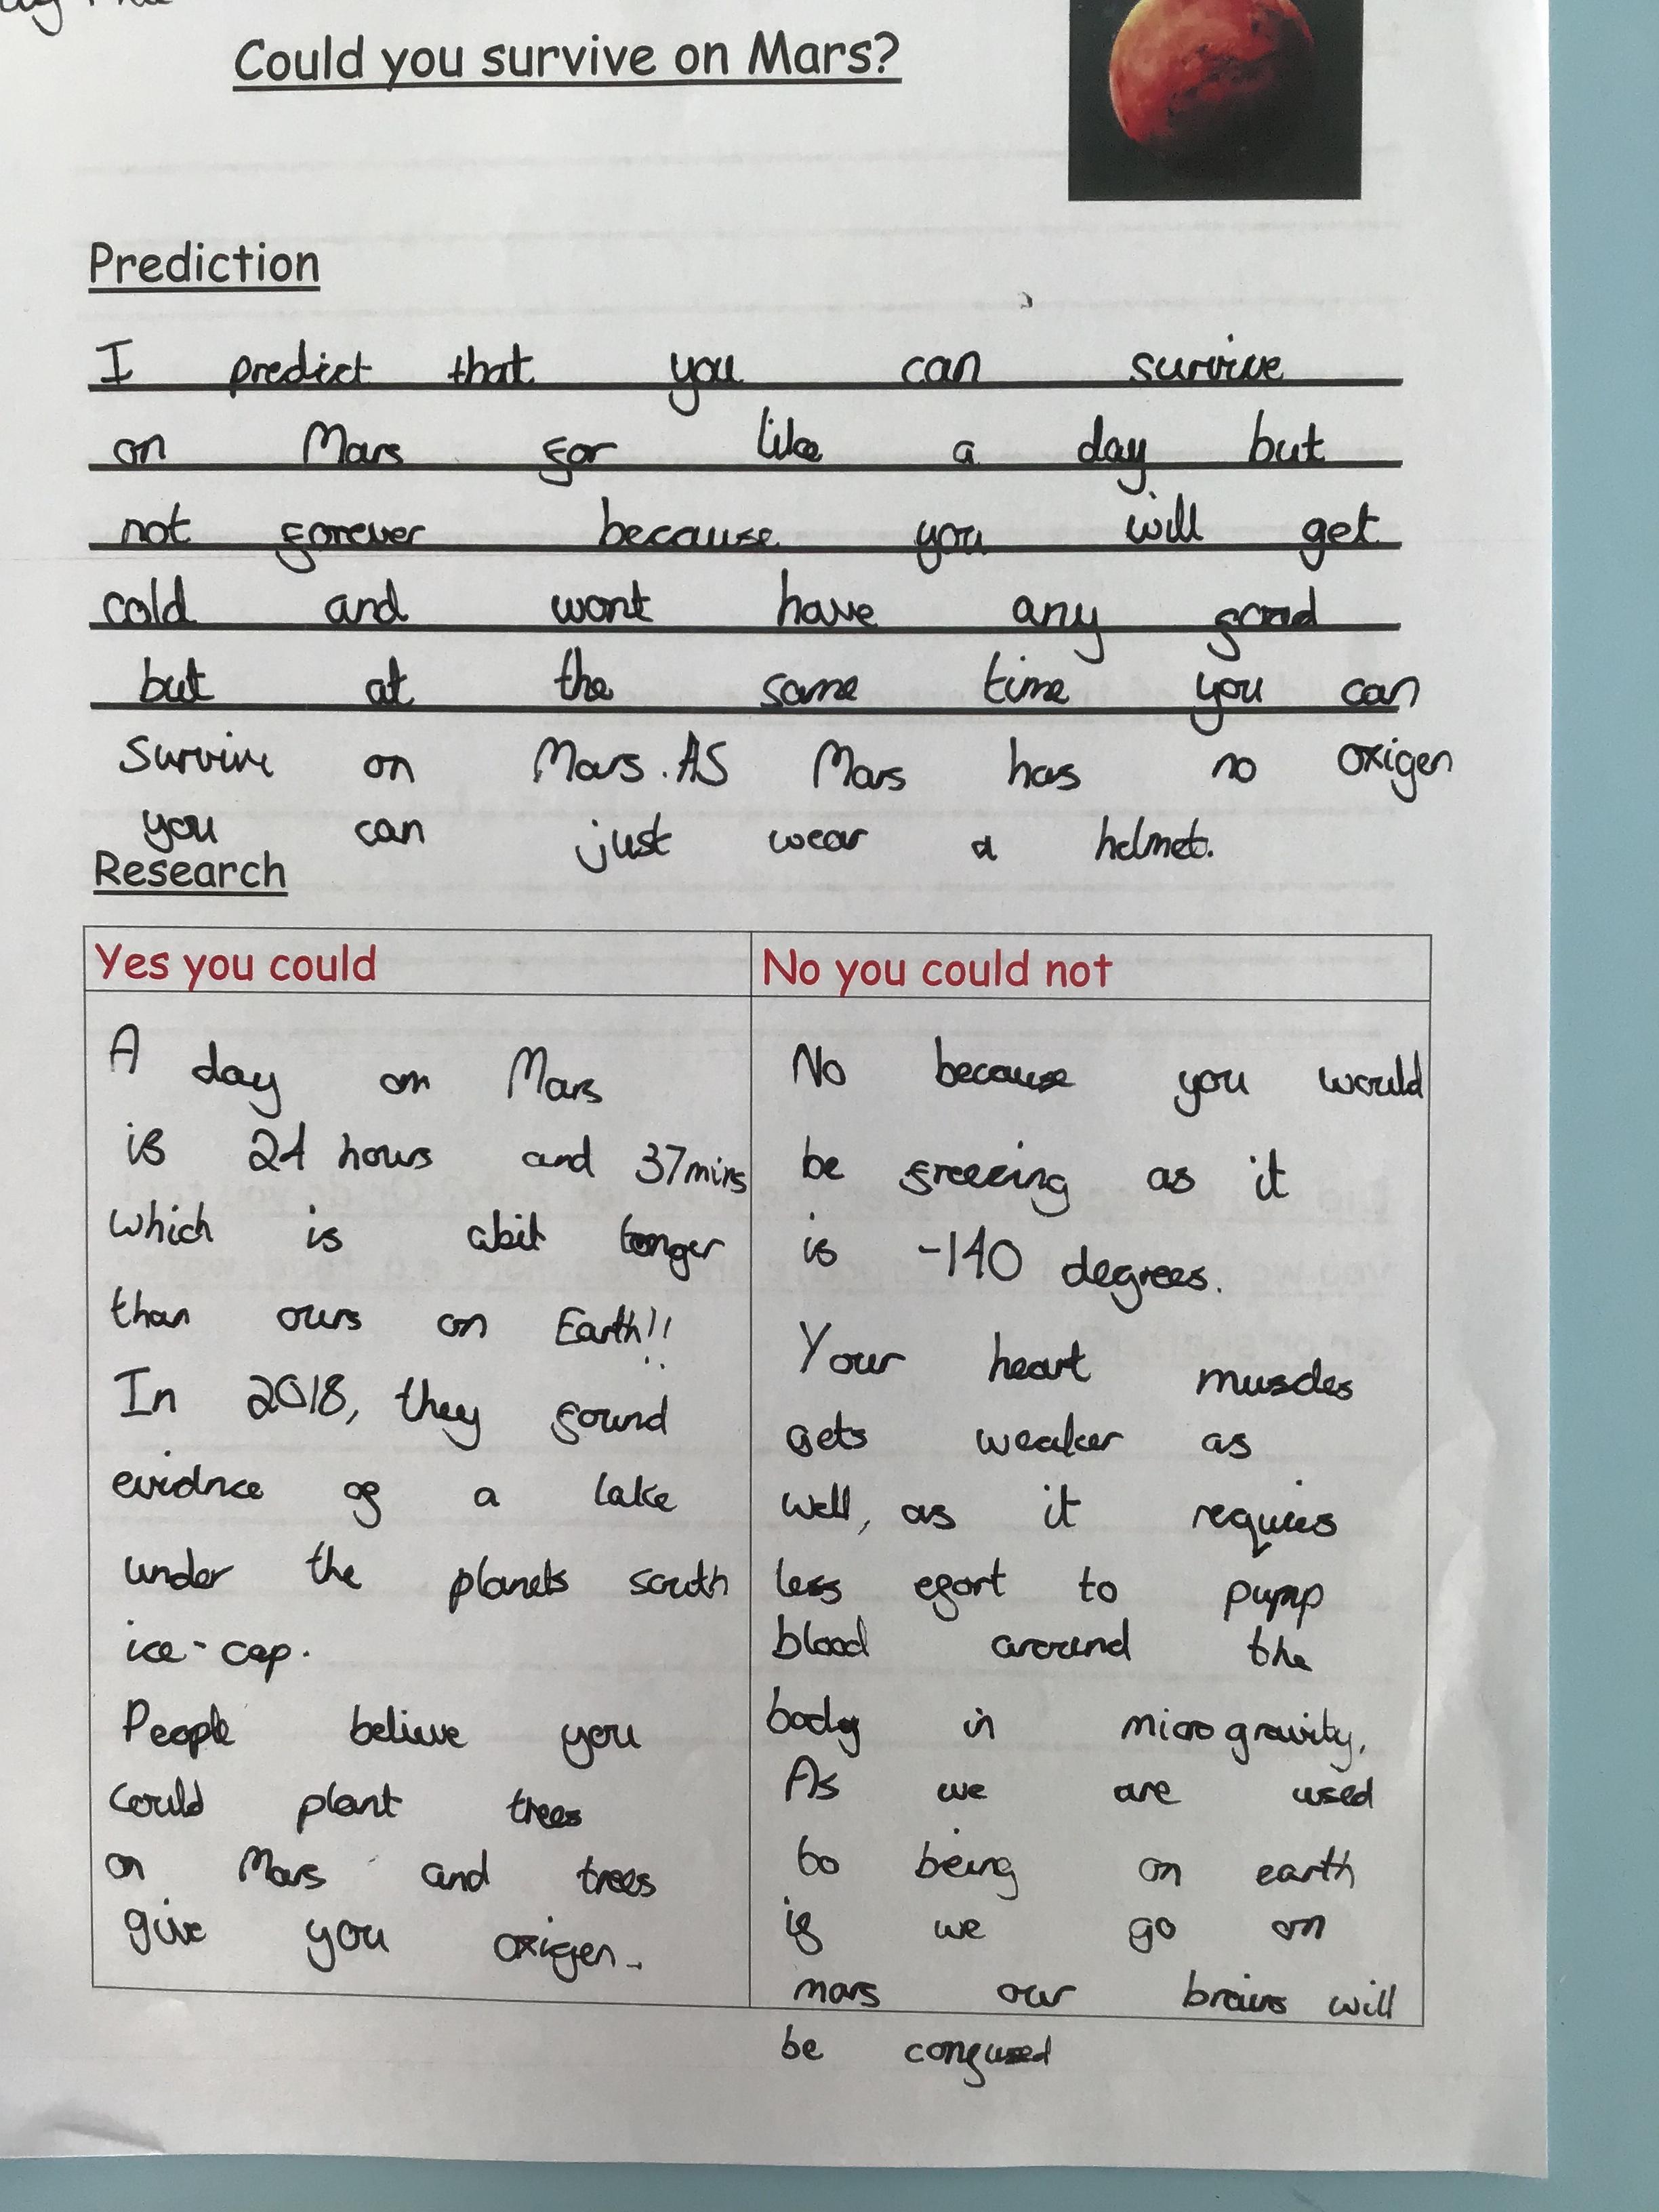 Could you survive on Mars?
Prediction
I predict that you can survive
on Mars for like a day but
not forever because you will get
cold and wont have any food
but at the same time you can
Survive on Mars. AS Mars has no oxigen
you can just wear a helmet.
Research
Yes you could
A day on Mars
is 24 hours and 37mins
which is abit longer
than ours on Earth!!
In 2018, they found
evidnce of a lake
under the planets south
ice-cap.
People believe you
could plant trees
on Mars and trees
give you oxigen.
No you could not
No because you would
be freezing as it
is -140 degrees.
Your heart muscles
gets weaker as
well, as it requires
less efort to pump
blood around the
body in micro gravity.
As we are used
to being on earth
if we go on
mars our brains will
be confused